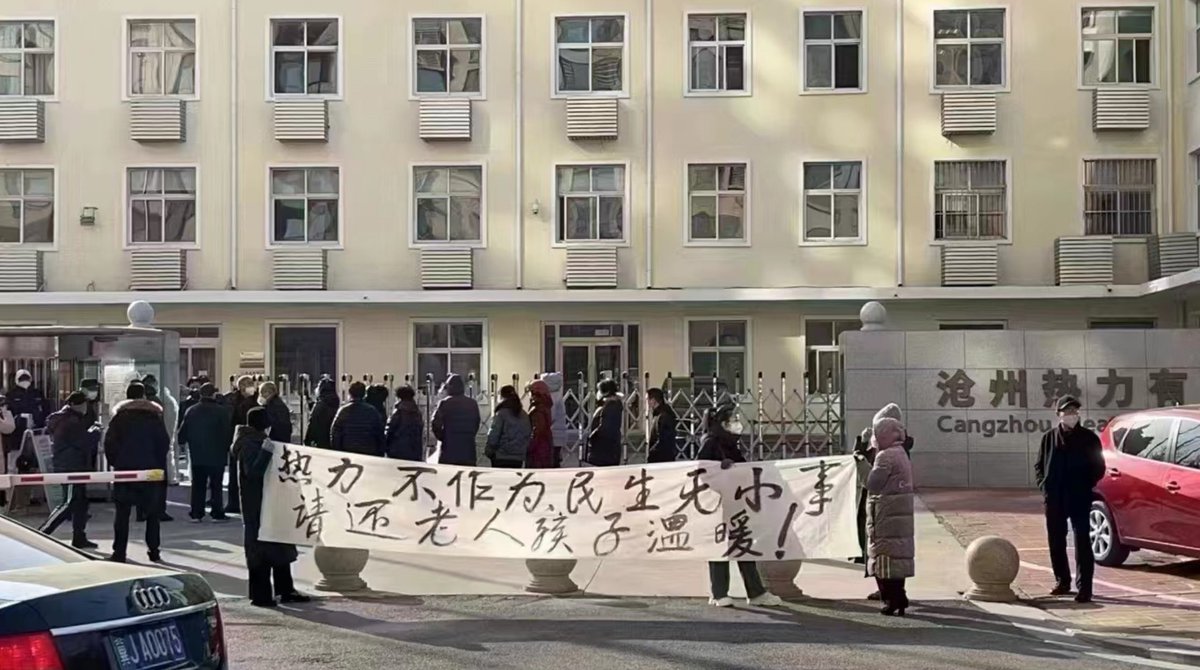 沧州热力有
Cangzhou Hea
热力不作为,民生无小事
请还老人孩子温暖!
JA0075